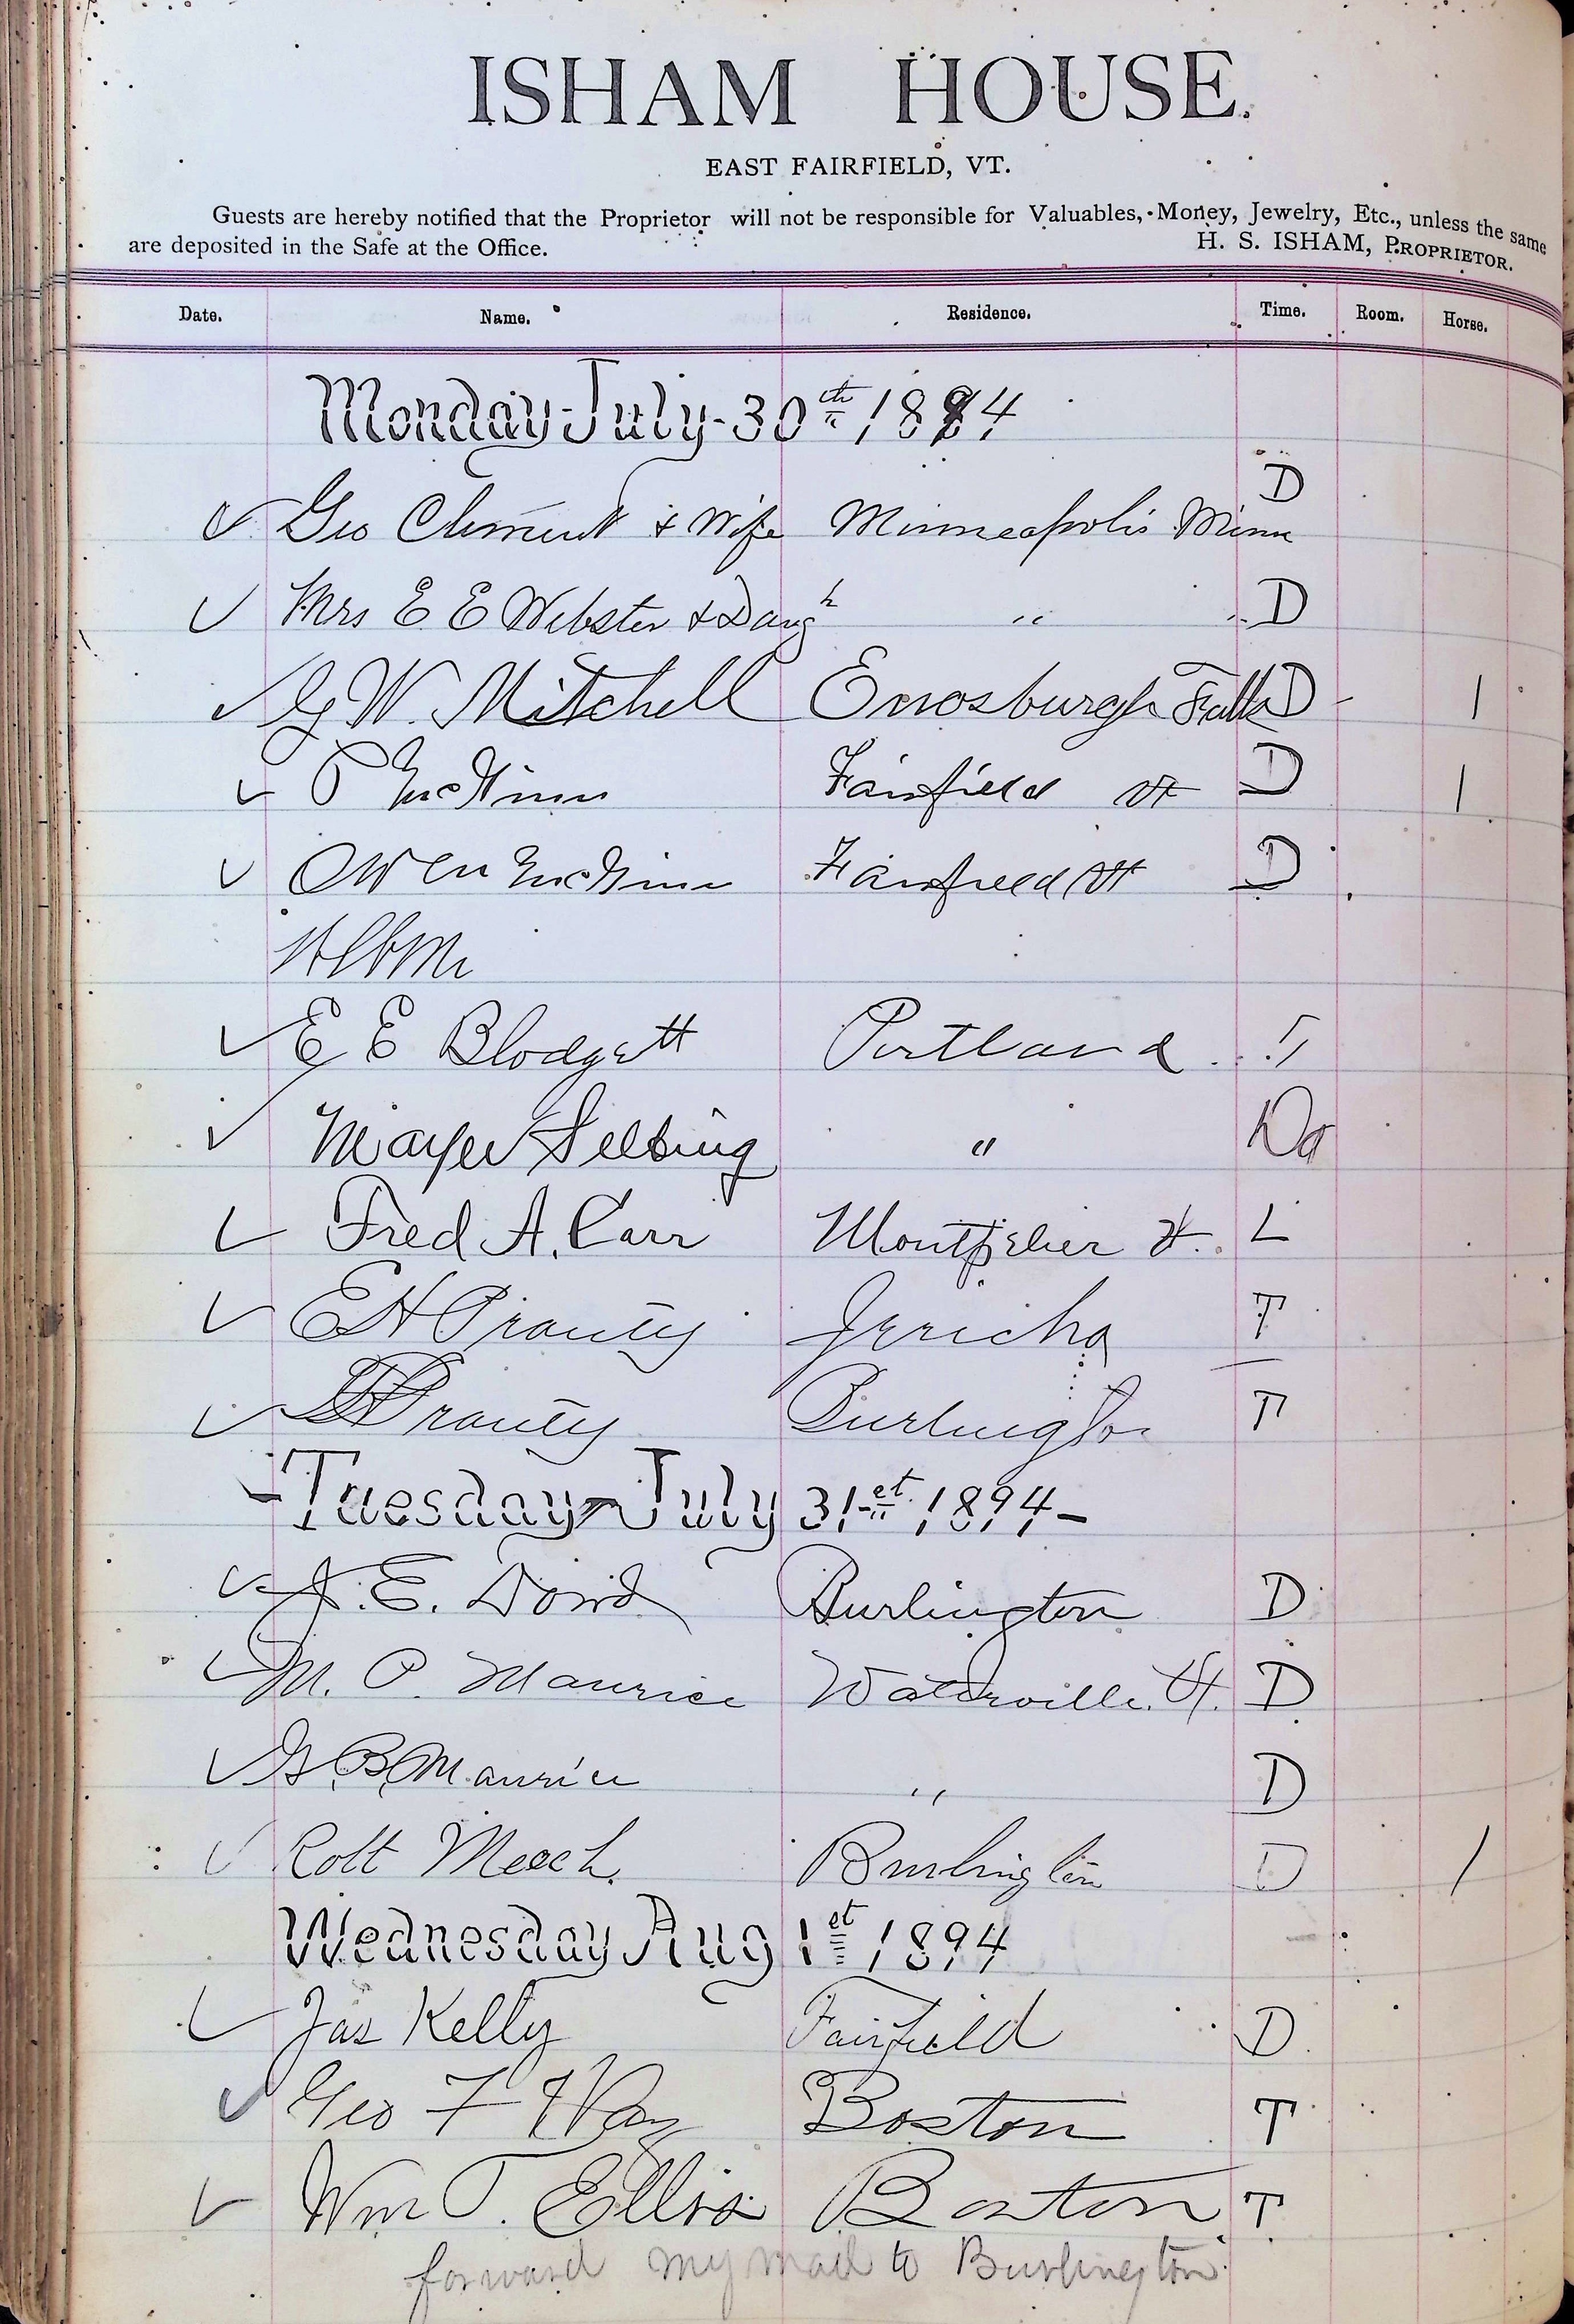 ISHAM HOUSE.
EAST FAIRFIELD, VT.
Guests are hereby notified that the Proprietor will not be responsible for Valuables, Money, Jewelry, Etc., unless the same
are deposited in the Safe at the Office. H. S. ISHAM, PROPRIETOR.
Date. Name. Residence. Time. Room. Horse.
Monday July 30th 1894
Geo Clement & Wife Minneapolis Minn D
Mrs E E Webster & Daugh " " D
G W. Mitchell Enosburgh Falls D 1
P McGinn Fairfield Vt D 1
Owen McGinn Fairfield Vt D
E E Blodgett Portland
Mayer " Do
Fred A. Carr Montpelier Vt. L
E H Prouty Jericho T
Prouty Burlington T
Tuesday July 31st 1894
J. E. Burlington D
M. P. Maurice Waterville. Vt. D
G B Maurice " D
Robt Meech. Burlington D 1
Wednesday Aug 1st 1894
Jas Kelly Fairfield D
Geo F Way Boston T
Wm T. Ellis Boston T
forward my mail to Burlington